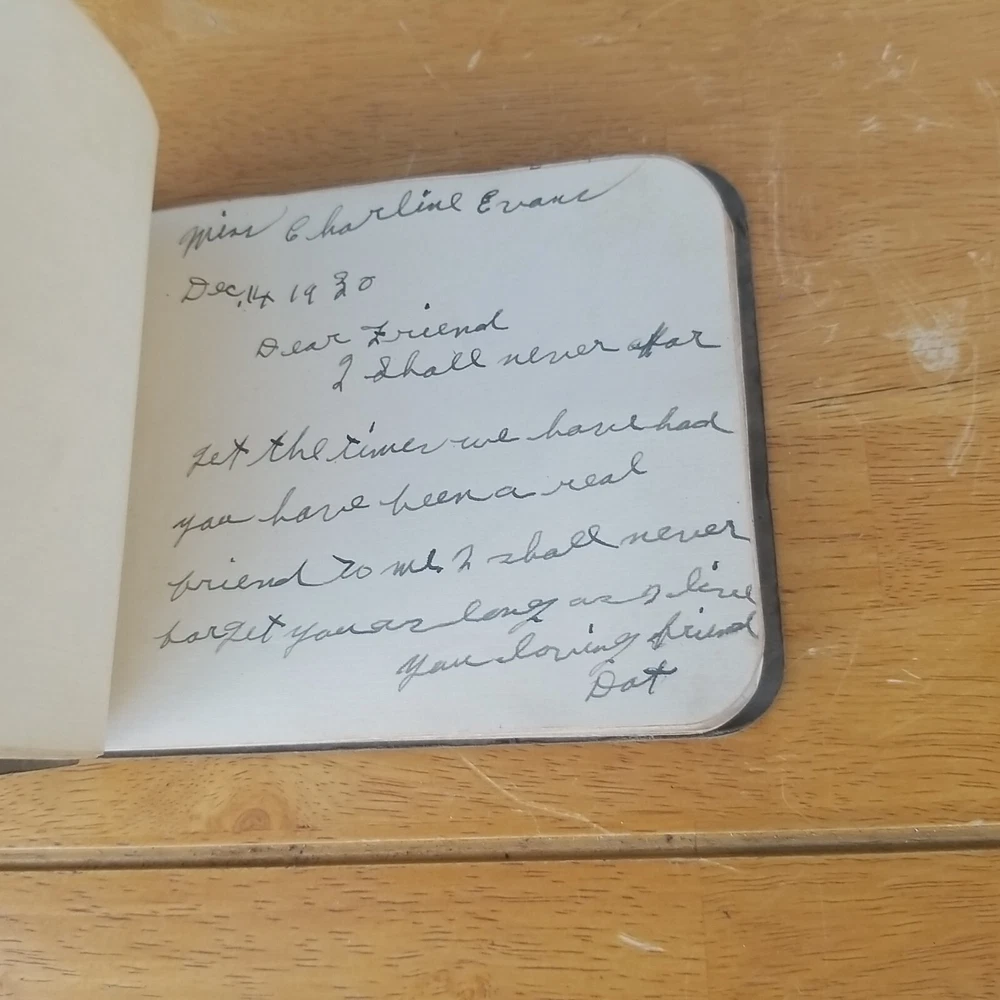 Miss Charline Evans
Dec, 14 1930
Dear Friend
I Shall never for
get the times we have had
you have been a real
friend to me. I shall never
forget you as long as I live
you loving friend
Dot